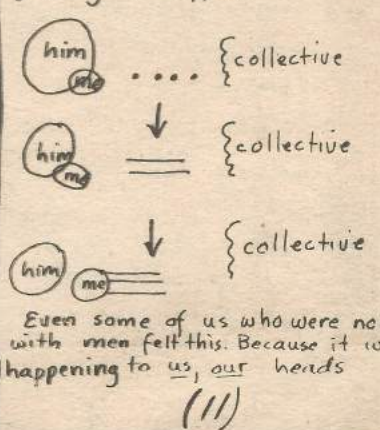 him me .... {collective
him me {collective
him me {collective
Even some of us who were no
with men felt this. Because it w
happening to us, our heads
(11)